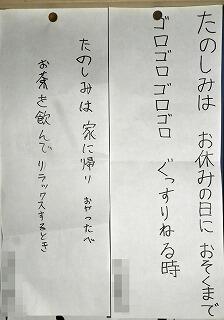 たのしみは お休みの日に おそくまで
ゴロゴロゴロゴロ ぐっすりねる時
たのしみは 家に帰り おやつたべ
お茶を飲んで リラックスするとき